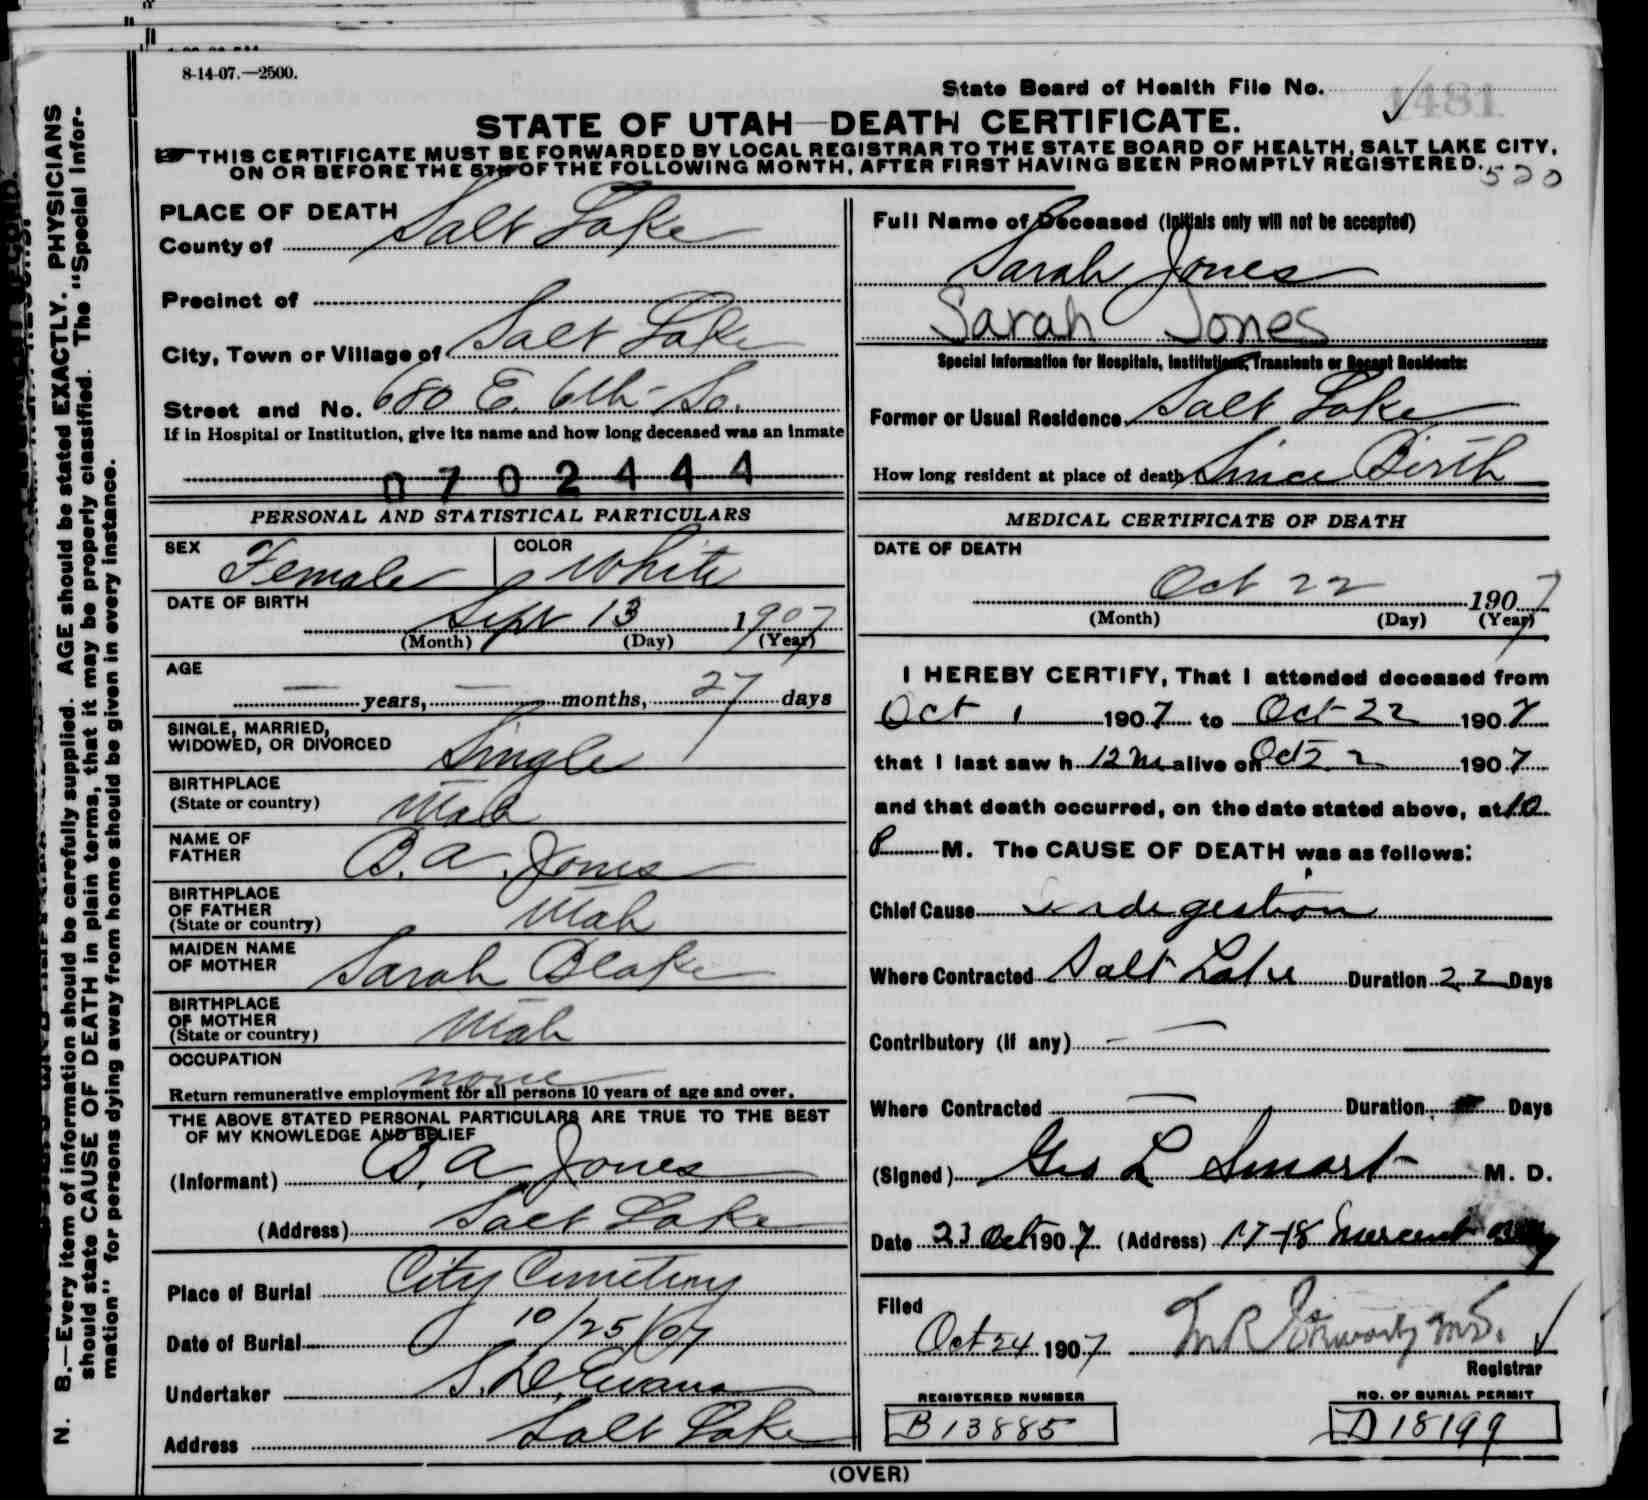 8-14-07.—2500.
State Board of Health File No. 1481
STATE OF UTAH—DEATH CERTIFICATE.
THIS CERTIFICATE MUST BE FORWARDED BY LOCAL REGISTRAR TO THE STATE BOARD OF HEALTH, SALT LAKE CITY,
ON OR BEFORE THE 5TH OF THE FOLLOWING MONTH, AFTER FIRST HAVING BEEN PROMPTLY REGISTERED.
520
PLACE OF DEATH
County of Salt Lake
Precinct of
City, Town or Village of Salt Lake
Street and No. 680 E. 6th So.
If in Hospital or Institution, give its name and how long deceased was an inmate
0702444
PERSONAL AND STATISTICAL PARTICULARS
SEX Female COLOR White
DATE OF BIRTH
Sept 13 1907
(Month) (Day) (Year)
AGE
— years, — months, 27 days
SINGLE, MARRIED,
WIDOWED, OR DIVORCED Single
BIRTHPLACE
(State or country) Utah
NAME OF
FATHER B. A. Jones
BIRTHPLACE
OF FATHER
(State or country) Utah
MAIDEN NAME
OF MOTHER Sarah Blake
BIRTHPLACE
OF MOTHER
(State or country) Utah
OCCUPATION
none
Return remunerative employment for all persons 10 years of age and over.
THE ABOVE STATED PERSONAL PARTICULARS ARE TRUE TO THE BEST
OF MY KNOWLEDGE AND BELIEF
(Informant) B. A. Jones
(Address) Salt Lake
Place of Burial City Cemetery
Date of Burial 10/25/07
Undertaker S. D. Evans
Address Salt Lake
Full Name of Deceased (Initials only will not be accepted)
Sarah Jones
Sarah Jones
Special Information for Hospitals, Institutions, Transients or Recent Residents:
Former or Usual Residence Salt Lake
How long resident at place of death Since Birth
MEDICAL CERTIFICATE OF DEATH
DATE OF DEATH
Oct 22 1907
(Month) (Day) (Year)
I HEREBY CERTIFY, That I attended deceased from
Oct 1 1907 to Oct 22 1907
that I last saw h 12 M alive on Oct 22 1907
and that death occurred, on the date stated above, at 10
P M. The CAUSE OF DEATH was as follows:
Chief Cause Indigestion
Where Contracted Salt Lake Duration 22 Days
Contributory (if any) —
Where Contracted — Duration Days
(Signed) Geo L Smart M. D.
Date 23 Oct 1907 (Address) 17-18
Filed
Oct 24 1907
Registrar
REGISTERED NUMBER
B 13885
NO. OF BURIAL PERMIT
D 18199
(OVER)
N. B.—Every item of information should be carefully supplied. AGE should be stated EXACTLY. PHYSICIANS
should state CAUSE OF DEATH in plain terms, that it may be properly classified. The "Special Infor-
mation" for persons dying away from home should be given in every instance.